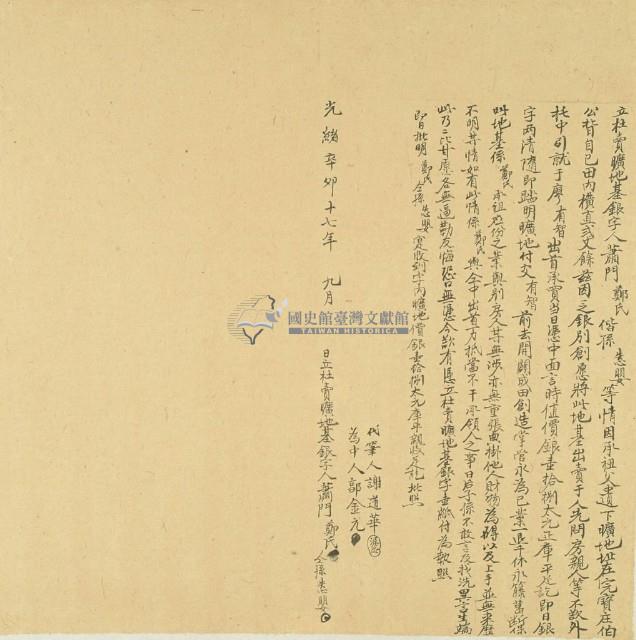 立杜賣曠地基銀字人蕭門鄭氏偕孫惷嬰等情因承祖父遺下曠地址在完寶庄伯
公背自己田內橫直弍丈餘茲因乏銀別創愿將此地基出賣于人先問房親人等不欲外
托中引就于廖有智出首承買當日憑中面言時值價銀壹拾捌大元正庫平足訖即日銀
字兩清隨即踏明曠地付交有智前去開闢成田創造掌管永為己業一退千休永籐葛斷保
此地基係鄭氏承祖應份之業與別房人等無涉亦無重張典掛他人財物為碍以及上手並無來歷
不明等情如有此情係鄭氏與仝中出首力抵當不干承領人之事日后子孫不敢言及找洗異言生端
此乃二比甘愿各無逼勒反悔恐口無憑今欲有憑立杜賣曠地基銀字壹紙付為執照
即日批明鄭氏仝孫惷嬰實收到字內曠地價銀壹拾捌大元庫平親收足訖批照
代筆人謝道華
為中人郭金元
光緒辛卯十七年九月日立杜賣曠地基銀字人蕭門鄭氏仝孫惷嬰
國史館臺灣文獻館
TAIWAN HISTORICA